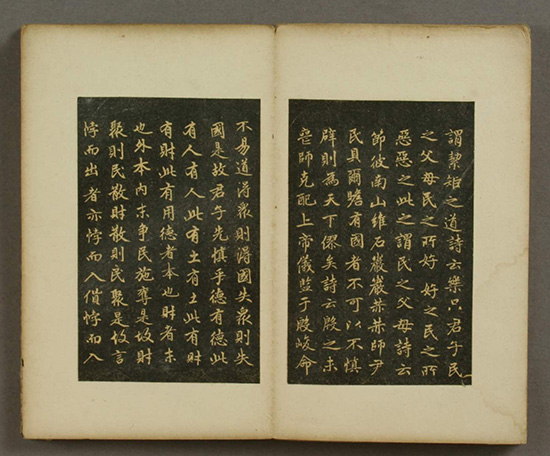 謂絜矩之道詩云樂只君子民
之父母民之所好好之民之所
惡惡之此之謂民之父母詩云
節彼南山維石巖巖赫赫師尹
民具爾瞻有國者不可以不慎
辟則為天下僇矣詩云殷之未
喪師克配上帝儀監于殷峻命
不易道得眾則得國失眾則失
國是故君子先慎乎德有德此
有人有人此有土有土此有財
有財此有用德者本也財者末
也外本內末爭民施奪是故財
聚則民散財散則民聚是故言
悖而出者亦悖而入貨悖而入